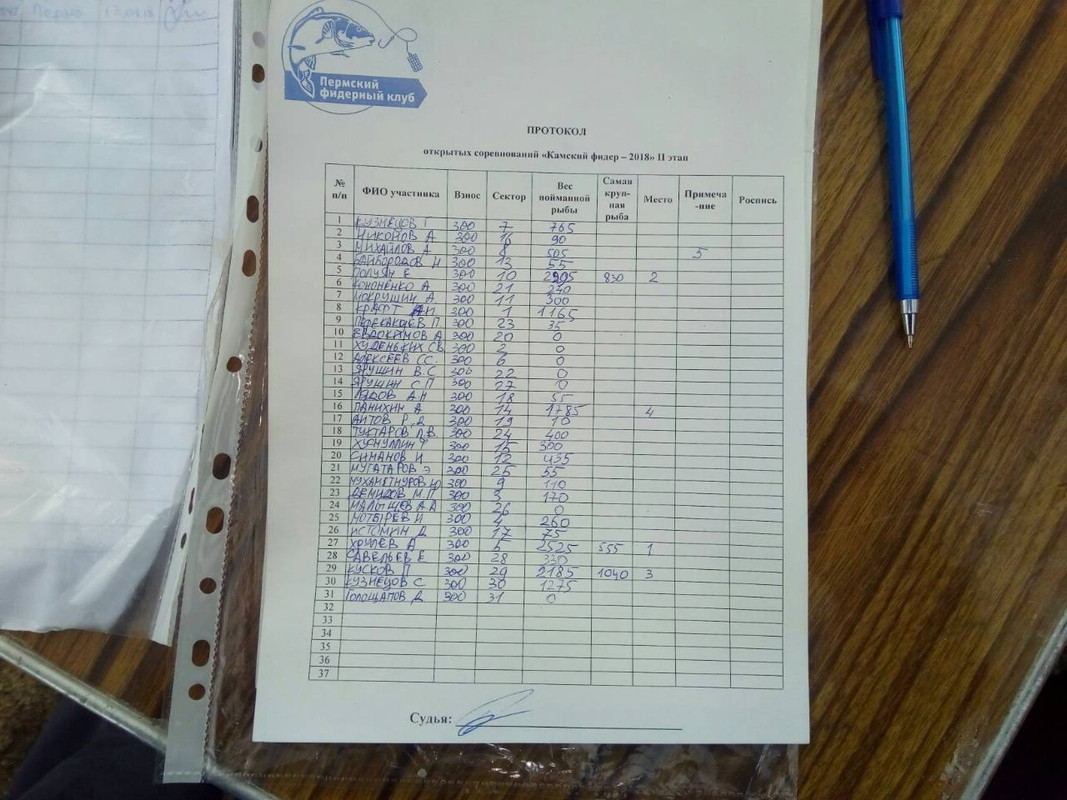 Пермский
фидерный клуб
ПРОТОКОЛ
открытых соревнований «Камский фидер – 2018» II этап
№ п/п ФИО участника Взнос Сектор Вес пойманной рыбы Самая круп-ная рыба Место Примеча-ние Роспись
1 КУЗНЕЦОВ Г 300 7 765
2 НИКОНОВ А 300 16 90
3 МИХАЙЛОВ А 300 8 505 5
4 БАЙБОРОДОВ Н 300 13 55
5 ПОЛУЯН Е 300 10 2205 830 2
6 КОНОНЕНКО А 300 21 240
7 МОКРУШИН А. 300 11 300
8 КРАФТ А.И. 300 1 1165
9 П. 300 23 35
10 ЕВДОКИМОВ А. 300 20 0
11 ХУДЕНЬКИХ СВ. 300 2 0
12 АЛЕКСЕЕВ СС. 300 6 0
13 ЯРУШИН В.С 300 22 0
14 ЯРУШИН С.П 300 27 0
15 А.Н 300 18 55
16 ПАНИХИН А 300 14 1785 4
17 АИТОВ Р.Д 300 19 10
18 ТУКТАРОВ Л.В. 300 24 400
19 ХУСНУЛЛИН Ф 300 15 300
20 СИМАНОВ И 300 12 435
21 МУГАТАРОВ Э 300 25 55
22 МУХАМЕТНУРОВ Ю 300 9 110
23 ДЕМИДОВ М.П 300 3 170
24 МАЛЫЩЕВ А.А 300 26 0
25 МОТЫРЕВ И 300 4 260
26 ИСТОМИН Д 300 17 75
27 ХРУЛЕВ А 300 5 2525 555 1
28 САВЕЛЬЕВ Е 300 28 330
29 КУСКОВ П 300 29 2185 1040 3
30 КУЗНЕЦОВ С 300 30 1275
31 ГОЛОЩАПОВ Д 300 31 0
32
33
34
35
36
37
Судья: